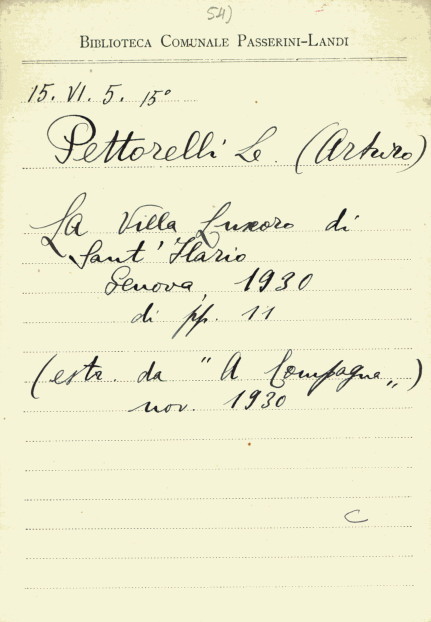 54)
BIBLIOTECA COMUNALE PASSERINI-LANDI
15. VI. 5. 15°
Pettorelli Le. (Arturo)
La Villa Luxoro di
Sant' Ilario
Genova, 1930
di pp. 11
(estr. da " A Compagna „)
nov. 1930
C